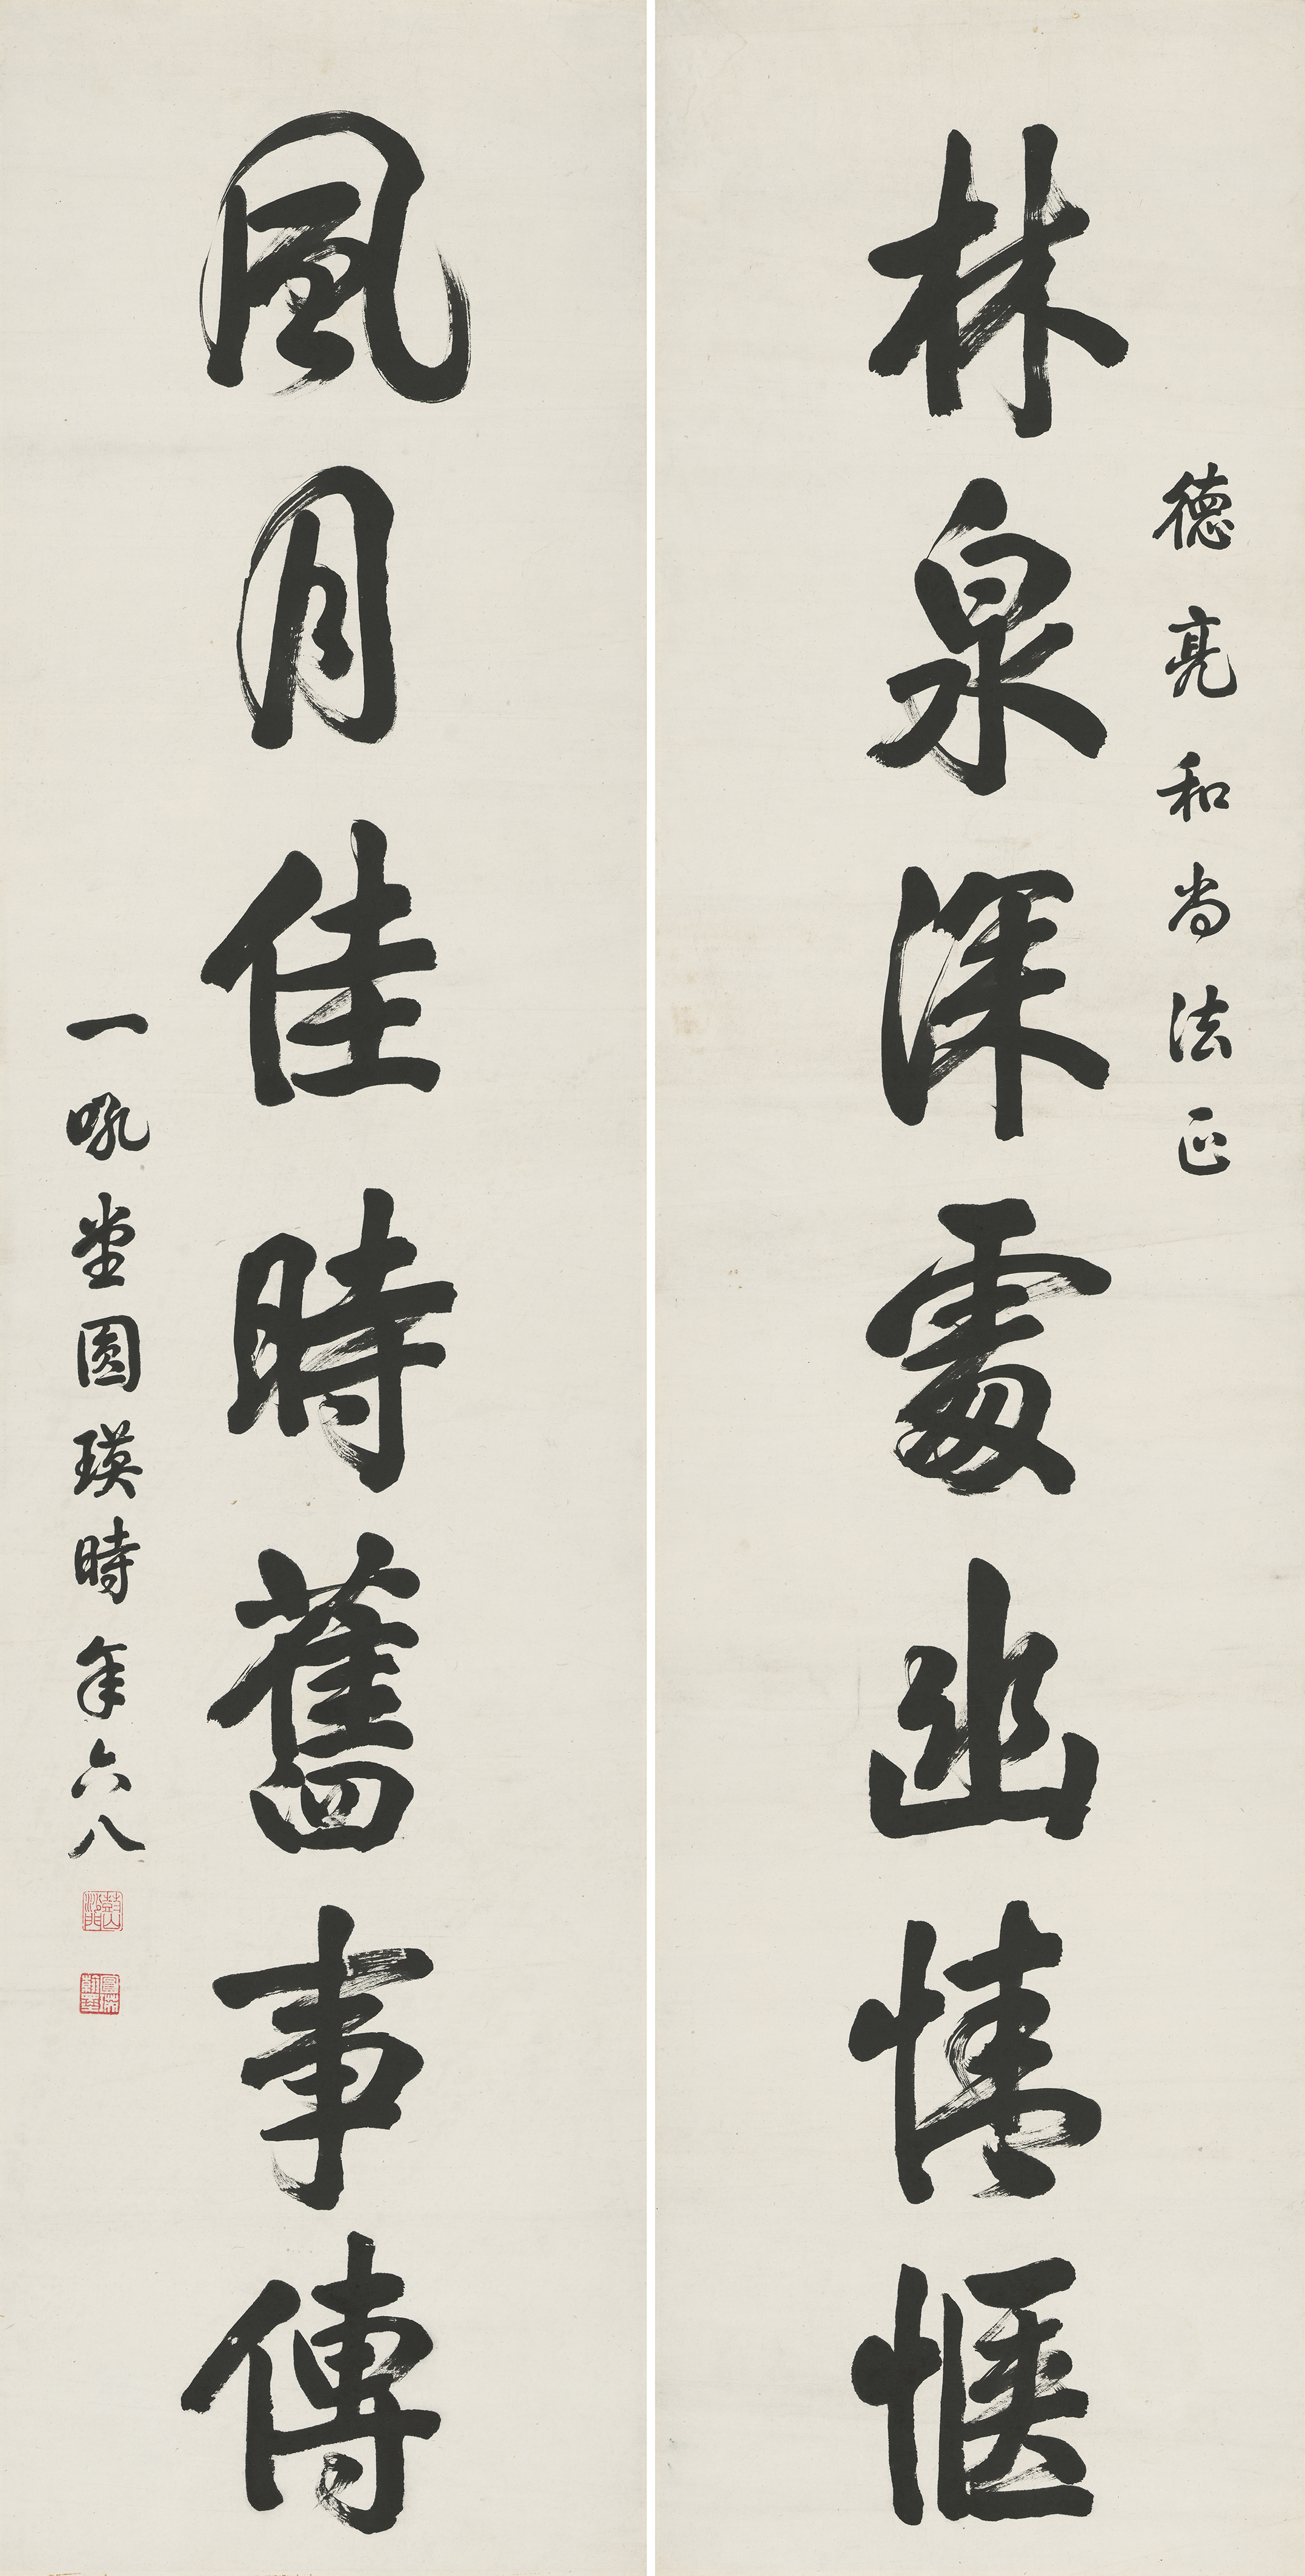 德亮和尚法正
林泉深處幽情愜
風月佳時舊事傳
一吼堂圓瑛時年六八